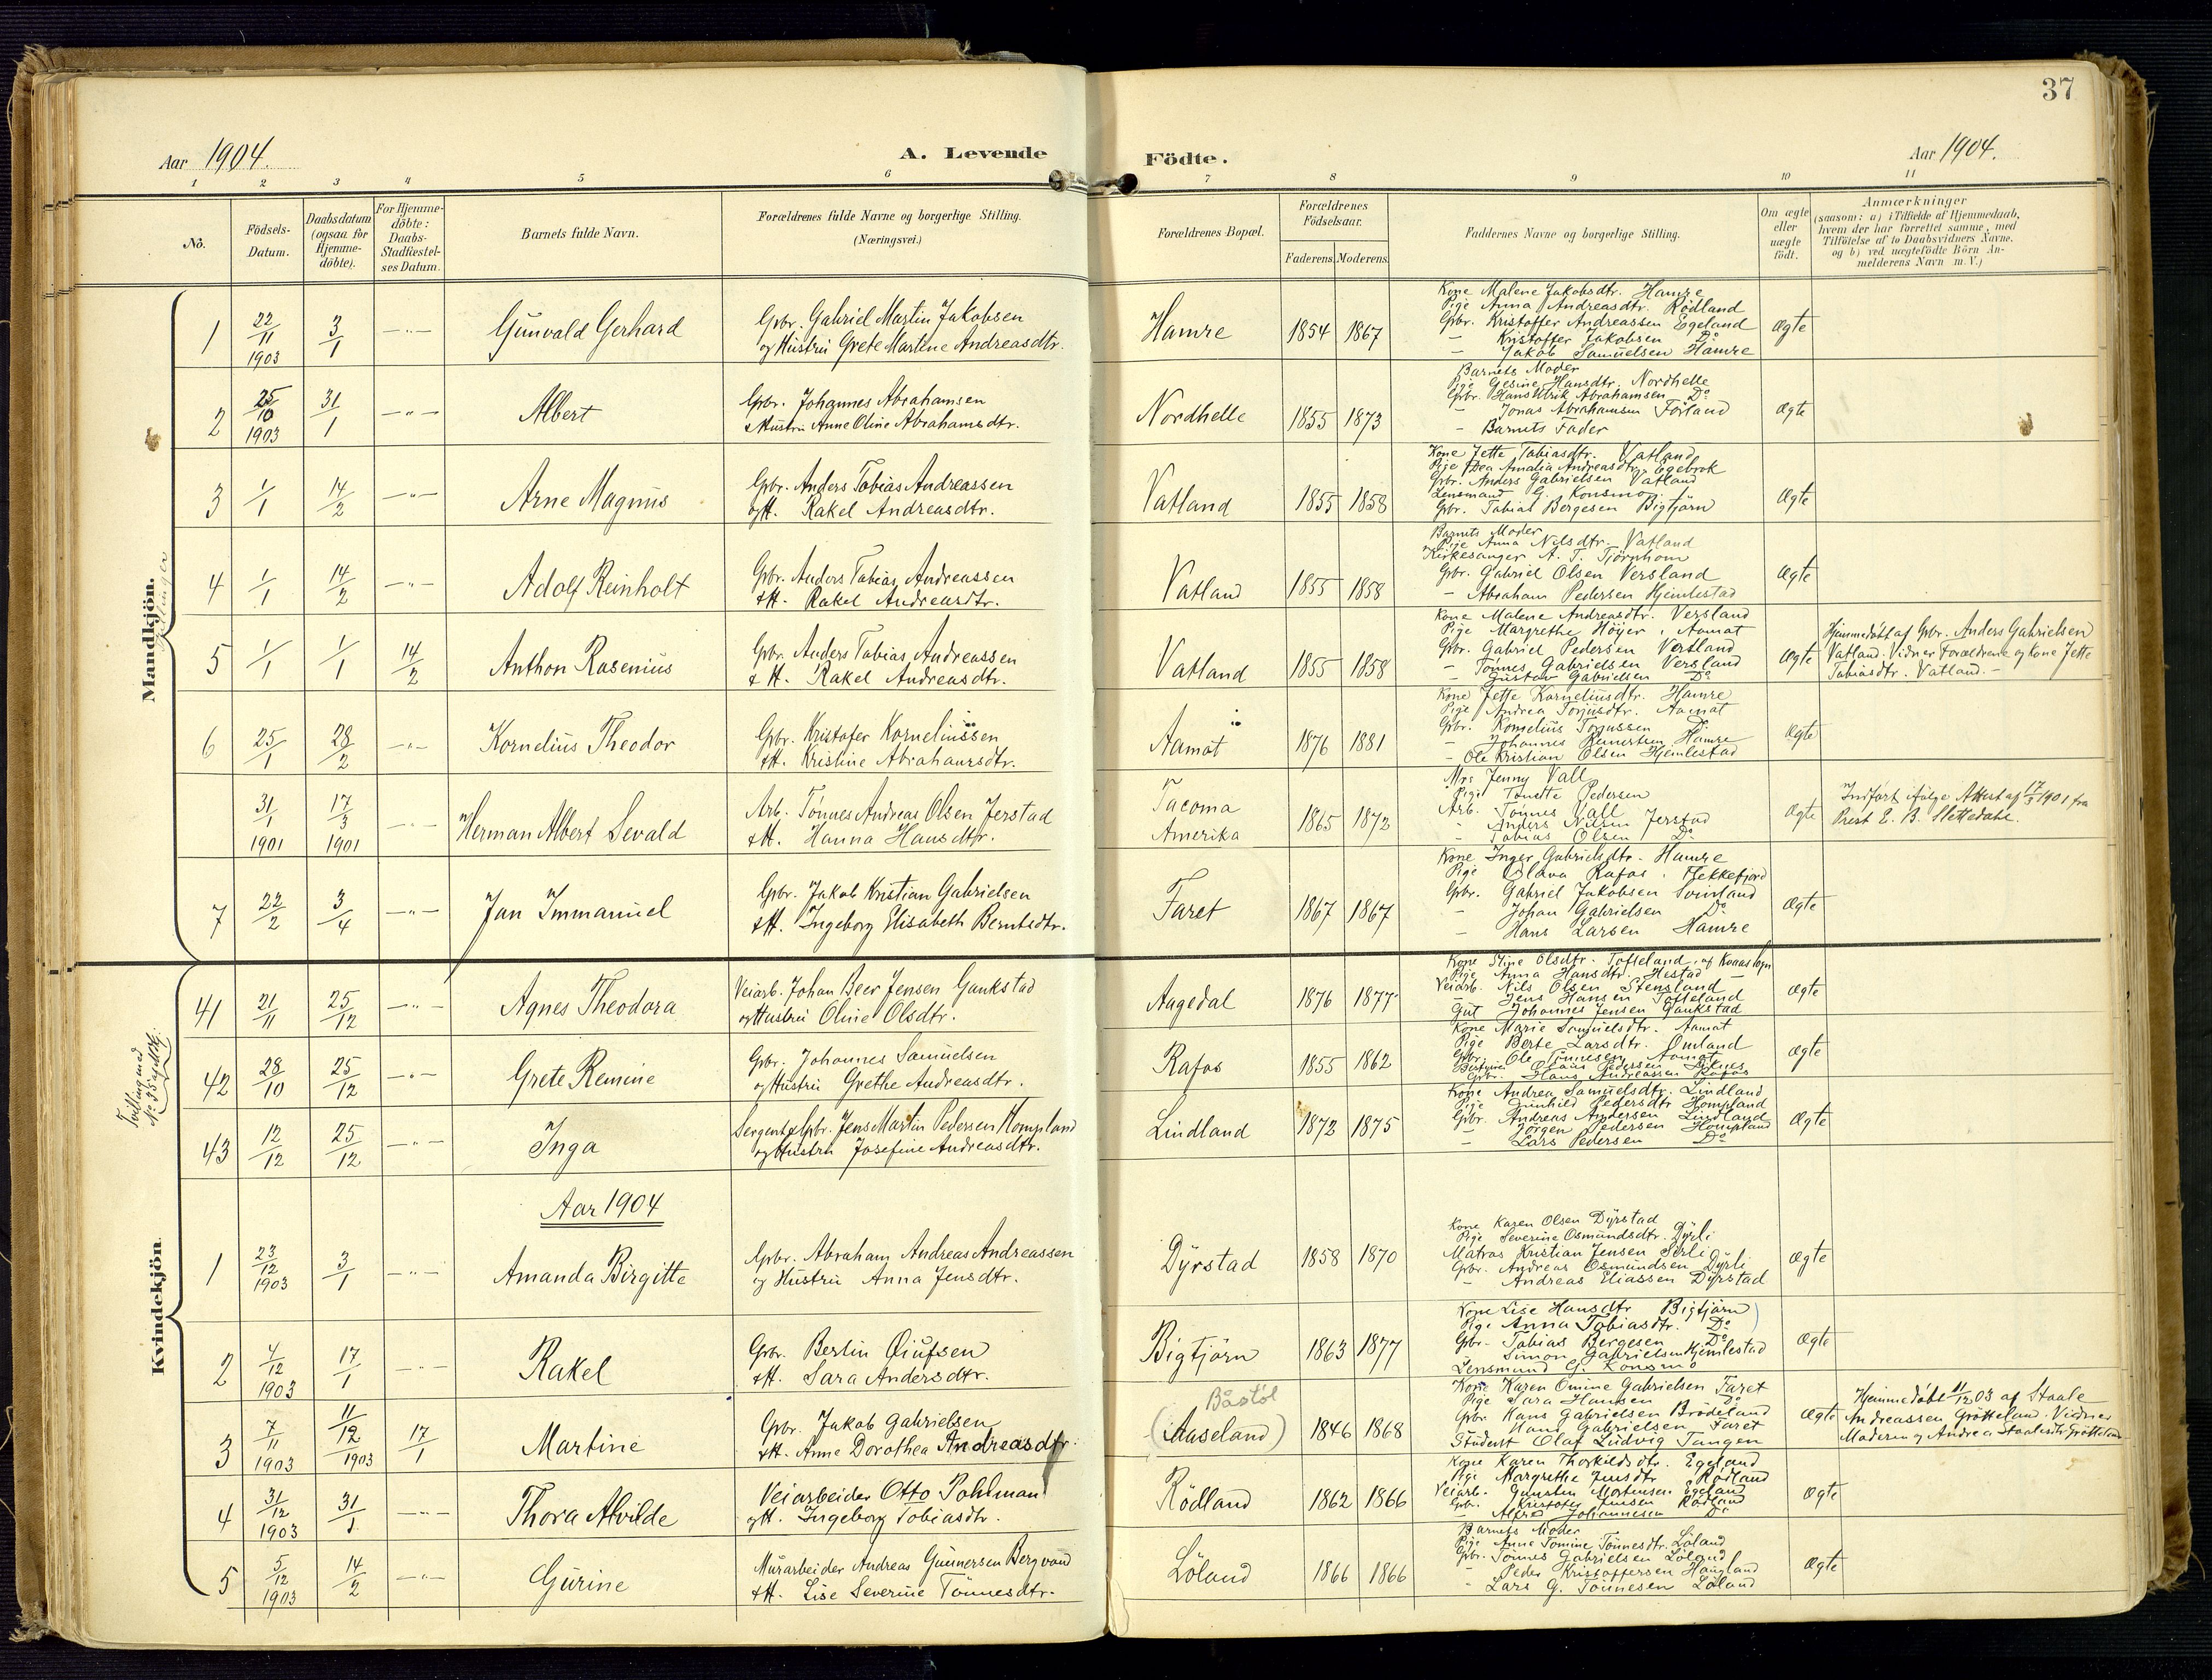 37
Aar 1904.
A. Levende
Födte.
Aar 1904.
1 2 3 4 5 6 7 8 9 10 11
No.
Födsels-Datum.
Daabsdatum (ogsaa for Hjemmedöbte).
For Hjemmedöbte: Daabs-Stadfæstelses Datum.
Barnets fulde Navn.
Forældrenes fulde Navne og borgerlige Stilling.
(Næringsvei.)
Forældrenes Bopæl.
Forældrenes Födselsaar.
Faderens. Moderens.
Faddernes Navne og borgerlige Stilling.
Om ægte eller uægte födt.
Anmærkninger
(saasom: a) i Tilfælde af Hjemmedaab,
hvem der har forrettet samme, med
Tilföielse af to Daabsvidners Navne.
og b) ved uægtefödte Börn An-
melderens Navn m. V.)
Mandkjön.
1 22/11 1903 3/1 -„- Gunvald Gerhard
Gbr. Gabriel Martin Jakobsen
og Hustru Grete Martine Andreasdtr.
Hamre 1854 1867
Kone Malene Jakobsdtr. Hamre
Pige Anna Andreasdtr. Rödland
Gbr. Kristoffer Andreassen Egeland
- Kristoffer Jakobsen Do
- Jakob Samuelsen Hamre
Ægte
2 25/10 1903 31/1 -„- Albert
Gbr. Johannes Abrahamsen
& Hustru Anne Oline Abrahamsdtr.
Nordhelle 1855 1873
Barnets Moder
Pige Gesine Hansdtr. Nordhelle
Gbr. Hans Ulrik Abrahamsen Do
- Jonas Abrahamsen Förland
- Barnets Fader
Ægte
3 1/1 14/2 -„- Arne Magnus
Gbr. Anders Tobias Andreassen
og H. Rakel Andreasdtr.
Vatland 1855 1858
Kone Jette Tobiasdtr. Vatland
Pige Thea Amalia Andreasdtr. Egebrok
Gbr. Anders Gabrielsen Vatland
Lensmand G. Konsmo
Gbr. Tobias Bergesen Bigtjörn
Ægte
4 1/1 14/2 -„- Adolf Reinholt
Gbr. Anders Tobias Andreassen
& H. Rakel Andreasdtr.
Vatland 1855 1858
Barnets Moder
Pige Anna Nilsdtr. Vatland
Kirkesanger A. T. Tjörnhom
Gbr. Gabriel Olsen Versland
- Abraham Pedersen Hjemlestad
Ægte
5 1/1 1/1 14/2 Anthon Rasenius
Gbr. Anders Tobias Andreassen
& H. Rakel Andreasdtr.
Vatland 1855 1858
Kone Malene Andreasdtr. Versland
Pige Margrethe Höyer, Aamot
Gbr. Gabriel Pedersen Versland
- Tönnes Gabrielsen Versland
- Gustav Gabrielsen Do
Ægte
Hjemmedöbt af Gbr. Anders Gabrielsen
Vatland. Vidner Forældrene og kone Jette
Tobiasdtr. Vatland. -
6 25/1 28/2 -„- Kornelius Theodor
Gbr. Kristofer Korneliussen
& H. Kristine Abrahamsdtr.
Aamot 1876 1881
Kone Jette Korneliusdtr. Hamre
Pige Andrea Torjusdtr. Aamot
Gbr. Kornelius Torjussen Do
- Johannes Reinertsen Hamre
- Ole Kristian Olsen Hjemlestad
Ægte
31/1 1901 17/3 1901 -„- Herman Albert Sevald
Arb. Tönnes Andreas Olsen Jerstad
& H. Hanna Hansdtr.
Tacoma
Amerika
1865 1872
Mrs Jenny Vall
Pige Tonette Pedersen
Arb. Tönnes Vall
- Anders Nilsen Jerstad
- Tobias Olsen Do
Ægte
Indfört ifölge Attest af 17/3 1901 fra
Prest E. B. Slettedahl.
7 22/2 3/4 -„- Jan Immanuel
Gbr. Jakob Kristian Gabrielsen
& H. Ingeborg Elisabeth Berntsdtr.
Faret 1867 1867
Kone Inger Gabrielsdtr. Hamre
Pige Olava Rafos, Flekkefjord
Gbr. Gabriel Jakobsen Svindland
- Johan Gabrielsen Do
- Hans Larsen Hamre
Ægte
Kvindekjön.
41 21/11 25/12 -„- Agnes Theodora
Veiarb. Johan Beer Jensen Gaukstad
og Hustru Oline Olsdtr.
Aagedal 1876 1877
Kone Stine Olsdtr. Tofteland, af Konsmo Sogn
Pige Anna Hansdtr. Hestad -
Veiarb. Nils Olsen Stensland
- Jens Hansen Tofteland
Gut Johannes Jensen Gaukstad
Ægte
Tvilling med
No 35 
42 28/10 25/12 -„- Grete Remine
Gbr. Johannes Samuelsen
og Hustru Grethe Andreasdtr.
Rafos 1855 1862
Kone Marie Samuelsdtr. Aamot
Pige Berte Larsdtr. Omland
Gbr. Ole Tönnesen Aamot
Gbr. Hans Andreassen Rafos
Ægte
43 12/12 25/12 -„- Inga
Sergent & Gbr. Jens Martin Pedersen Hompland
og Hustru Josefine Andreasdtr.
Lindland 1872 1875
Kone Andrea Samuelsdtr. Lindland
Pige Gunhild Pedersdtr Hompland
Gbr. Andreas Andersen Lindland
- Jörgen Pedersen Hompland
- Lars Pedersen Do
Ægte
Aar 1904
1 23/12 1903 3/1 -„- Amanda Birgitte
Gbr. Abraham Andreas Andreassen
og Hustru Anna Jensdtr.
Dyrstad 1858 1870
Kone Karen Olsen Dyrstad
Pige Severine Osmundsdtr. Dyrli
Matros Kristian Jensen Serli
Gbr. Andreas Osmundsen Dyrli
- Andreas Eliassen Dyrstad
Ægte
2 4/12 1903 17/1 -„- Rakel
Gbr. Berlin Oiufsen
& H. Sara Andersdtr.
Bigtjörn 1863 1877
Kone Lise Hansdtr Bigtjörn
Pige Anna Tobiasdtr. Do
Gbr. Tobias Bergesen Do
- Simon Gabrielsen Hjemlestad
Lensmand G. Konsmo
Ægte
3 7/11 1903 11/12 1903 17/1 Martine
Gbr. Jakob Gabrielsen
& H. Anne Dorothea Andreasdtr.
Båstöl
(Aaseland) 1846 1868
Kone Karen Omine Gabrielsen Faret
Pige Sara Hansen Do
Gbr. Hans Gabrielsen Brödeland
- Hans Gabrielsen Faret
Student Olaf Ludvig Tangen
Ægte
Hjemmedöbt 11/12 03 af Staale
Andreassen Grötteland. Vidner
Moderen og Andrea Staalesdtr Grötteland
4 31/12 1903 31/1 -„- Thora Alvilde
Veiarbeider Otto Pohlman
og H. Ingeborg Tobiasdtr.
Rödland 1862 1866
Kone Karen Thorkildsdtr. Egeland
Pige Margrethe Jensdtr Rödland
Veiarb. Gunsten Mortensen Egeland
Gbr. Kristofer Jensen Rödland
- Alfred Johannesen Do
Ægte
5 5/12 1903 14/2 -„- Gurine
Murarbeider Andreas Gunnersen Bergvand
& H. Lise Severine Tönnesdtr.
Löland 1866 1866
Barnets Moder
Pige Anne Tomine Tönnesdtr. Löland
Gbr. Tönnes Gabrielsen Löland
- Peder Kristoffersen Haugland
- Lars G. Tönnesen Löland
Ægte